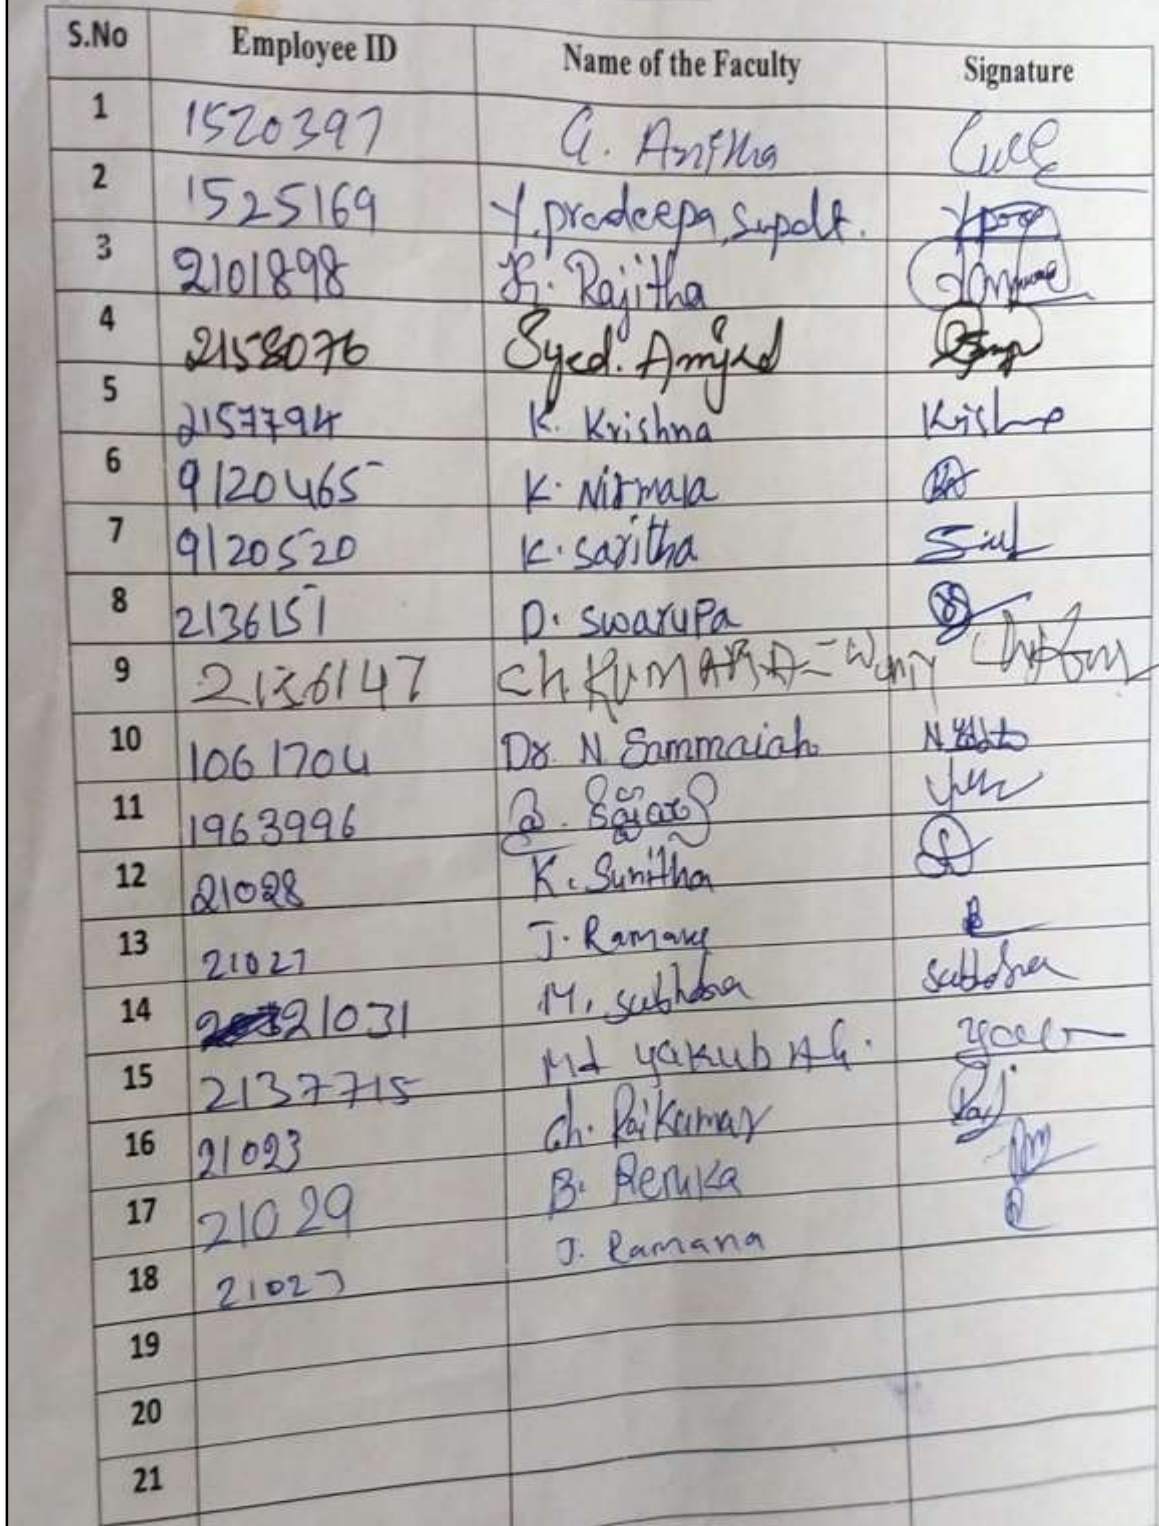 S.No Employee ID Name of the Faculty Signature
1 1520397 G. Anitha
2 1525169 Y. pradeepa, Supdt.
3 2101898 K. Rajitha
4 2158076 Syed. Amjad
5 2157794 K. Krishna
6 9120465 K. Nirmala
7 9120520 K. saritha
8 2136151 D. swarupa
9 2136147 Ch. KUMARA
10 1061704 Dr N Sammaiah
11 1963996
12 21028 K. Sunitha
13 21027 J. Ramana
14 21031 M. subhdra subhdra
15 2137715 Md yakub Ali.
16 21023 Ch. RajKumar Raj
17 21029 B. Renuka
18 21027 J. Ramana
19
20
21